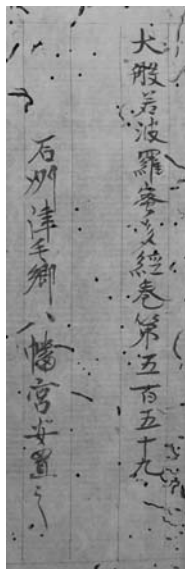 大般若波羅蜜多経巻第五百五十九
石州津毛郷八幡宮安置之